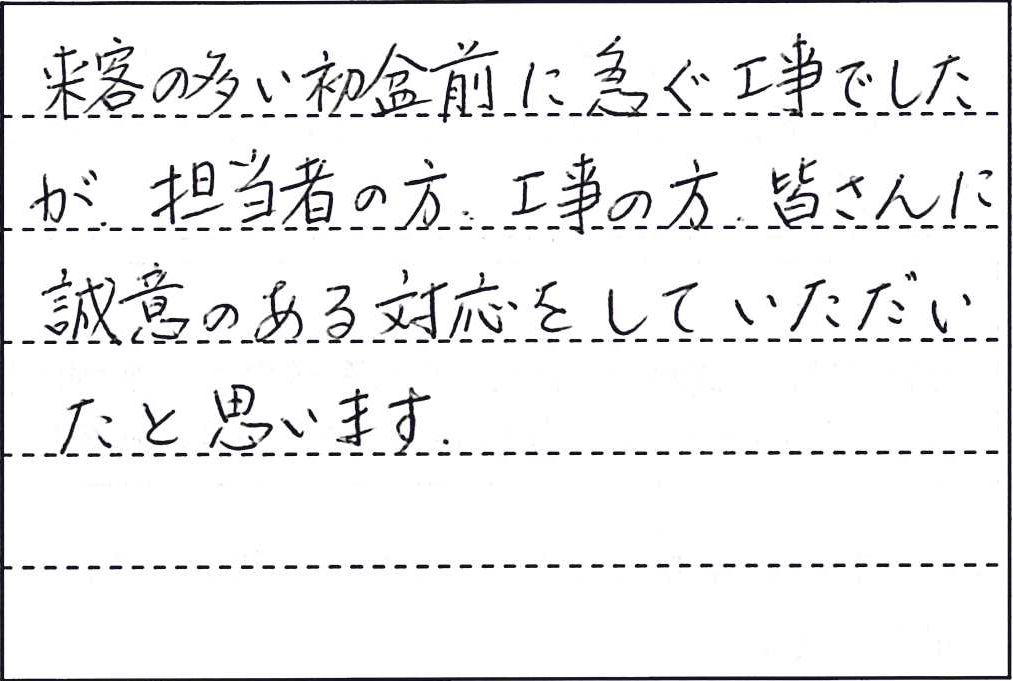 来客の多い初盆前に急ぐ工事でした
が、担当者の方、工事の方、皆さんに
誠意のある対応をしていただい
たと思います.